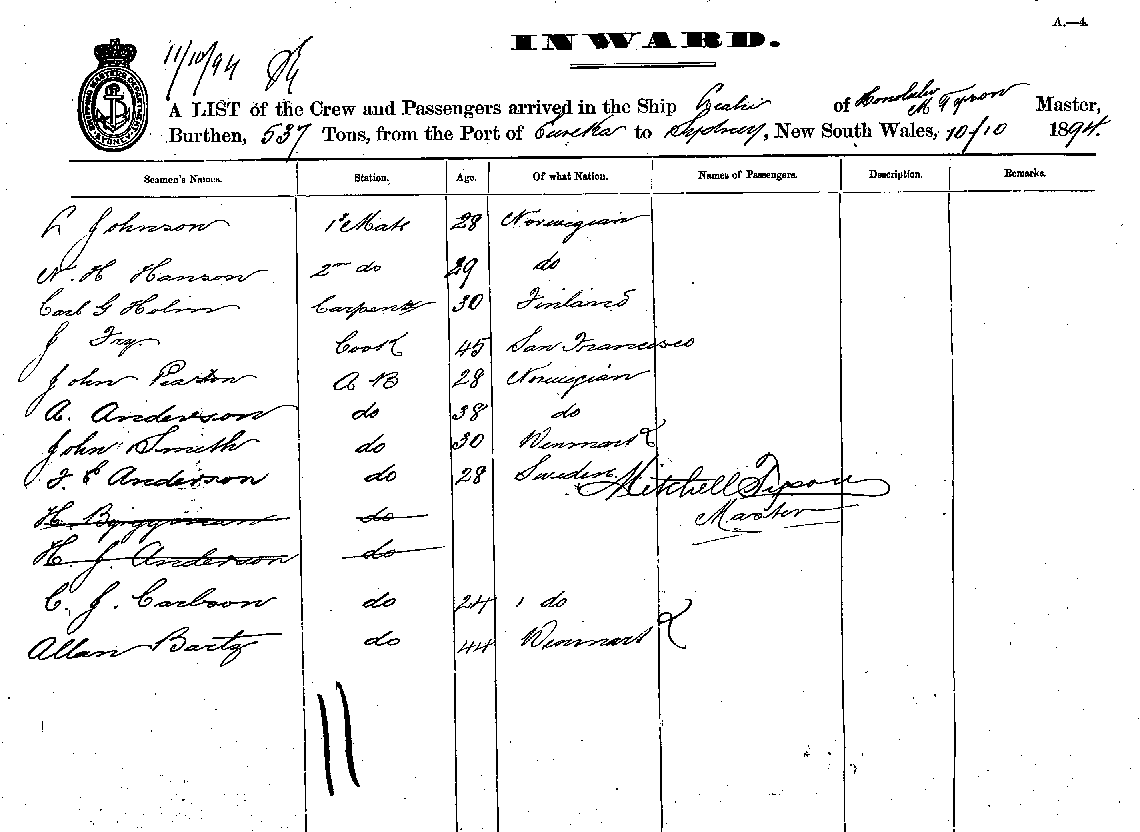 A.—4.
INWARD.
11/10/94
A LIST of the Crew and Passengers arrived in the Ship of Honolulu M Tyson Master,
Burthen, 537 Tons, from the Port of Eureka to Sydney, New South Wales, 10/10 1894.
Seamen's Names. Station. Age. Of what Nation. Names of Passengers. Description. Remarks.
Johnson 1st Mate 28 Norwegian
N. H Hanson 2nd do 29 do
Carl G Holm Carpentr 30 Finland
J Fry Cook 45 San Francisco
John Pearson A B 28 Norwegian
A. Anderson do 38 do
John Smith do 30 Denmark
F. E Anderson do 28 Sweden Mitchell Tyson
H. do Master
H. J. Anderson do
C. J. Carlson do 24 do
Allan Bartz do 44 Denmark
11